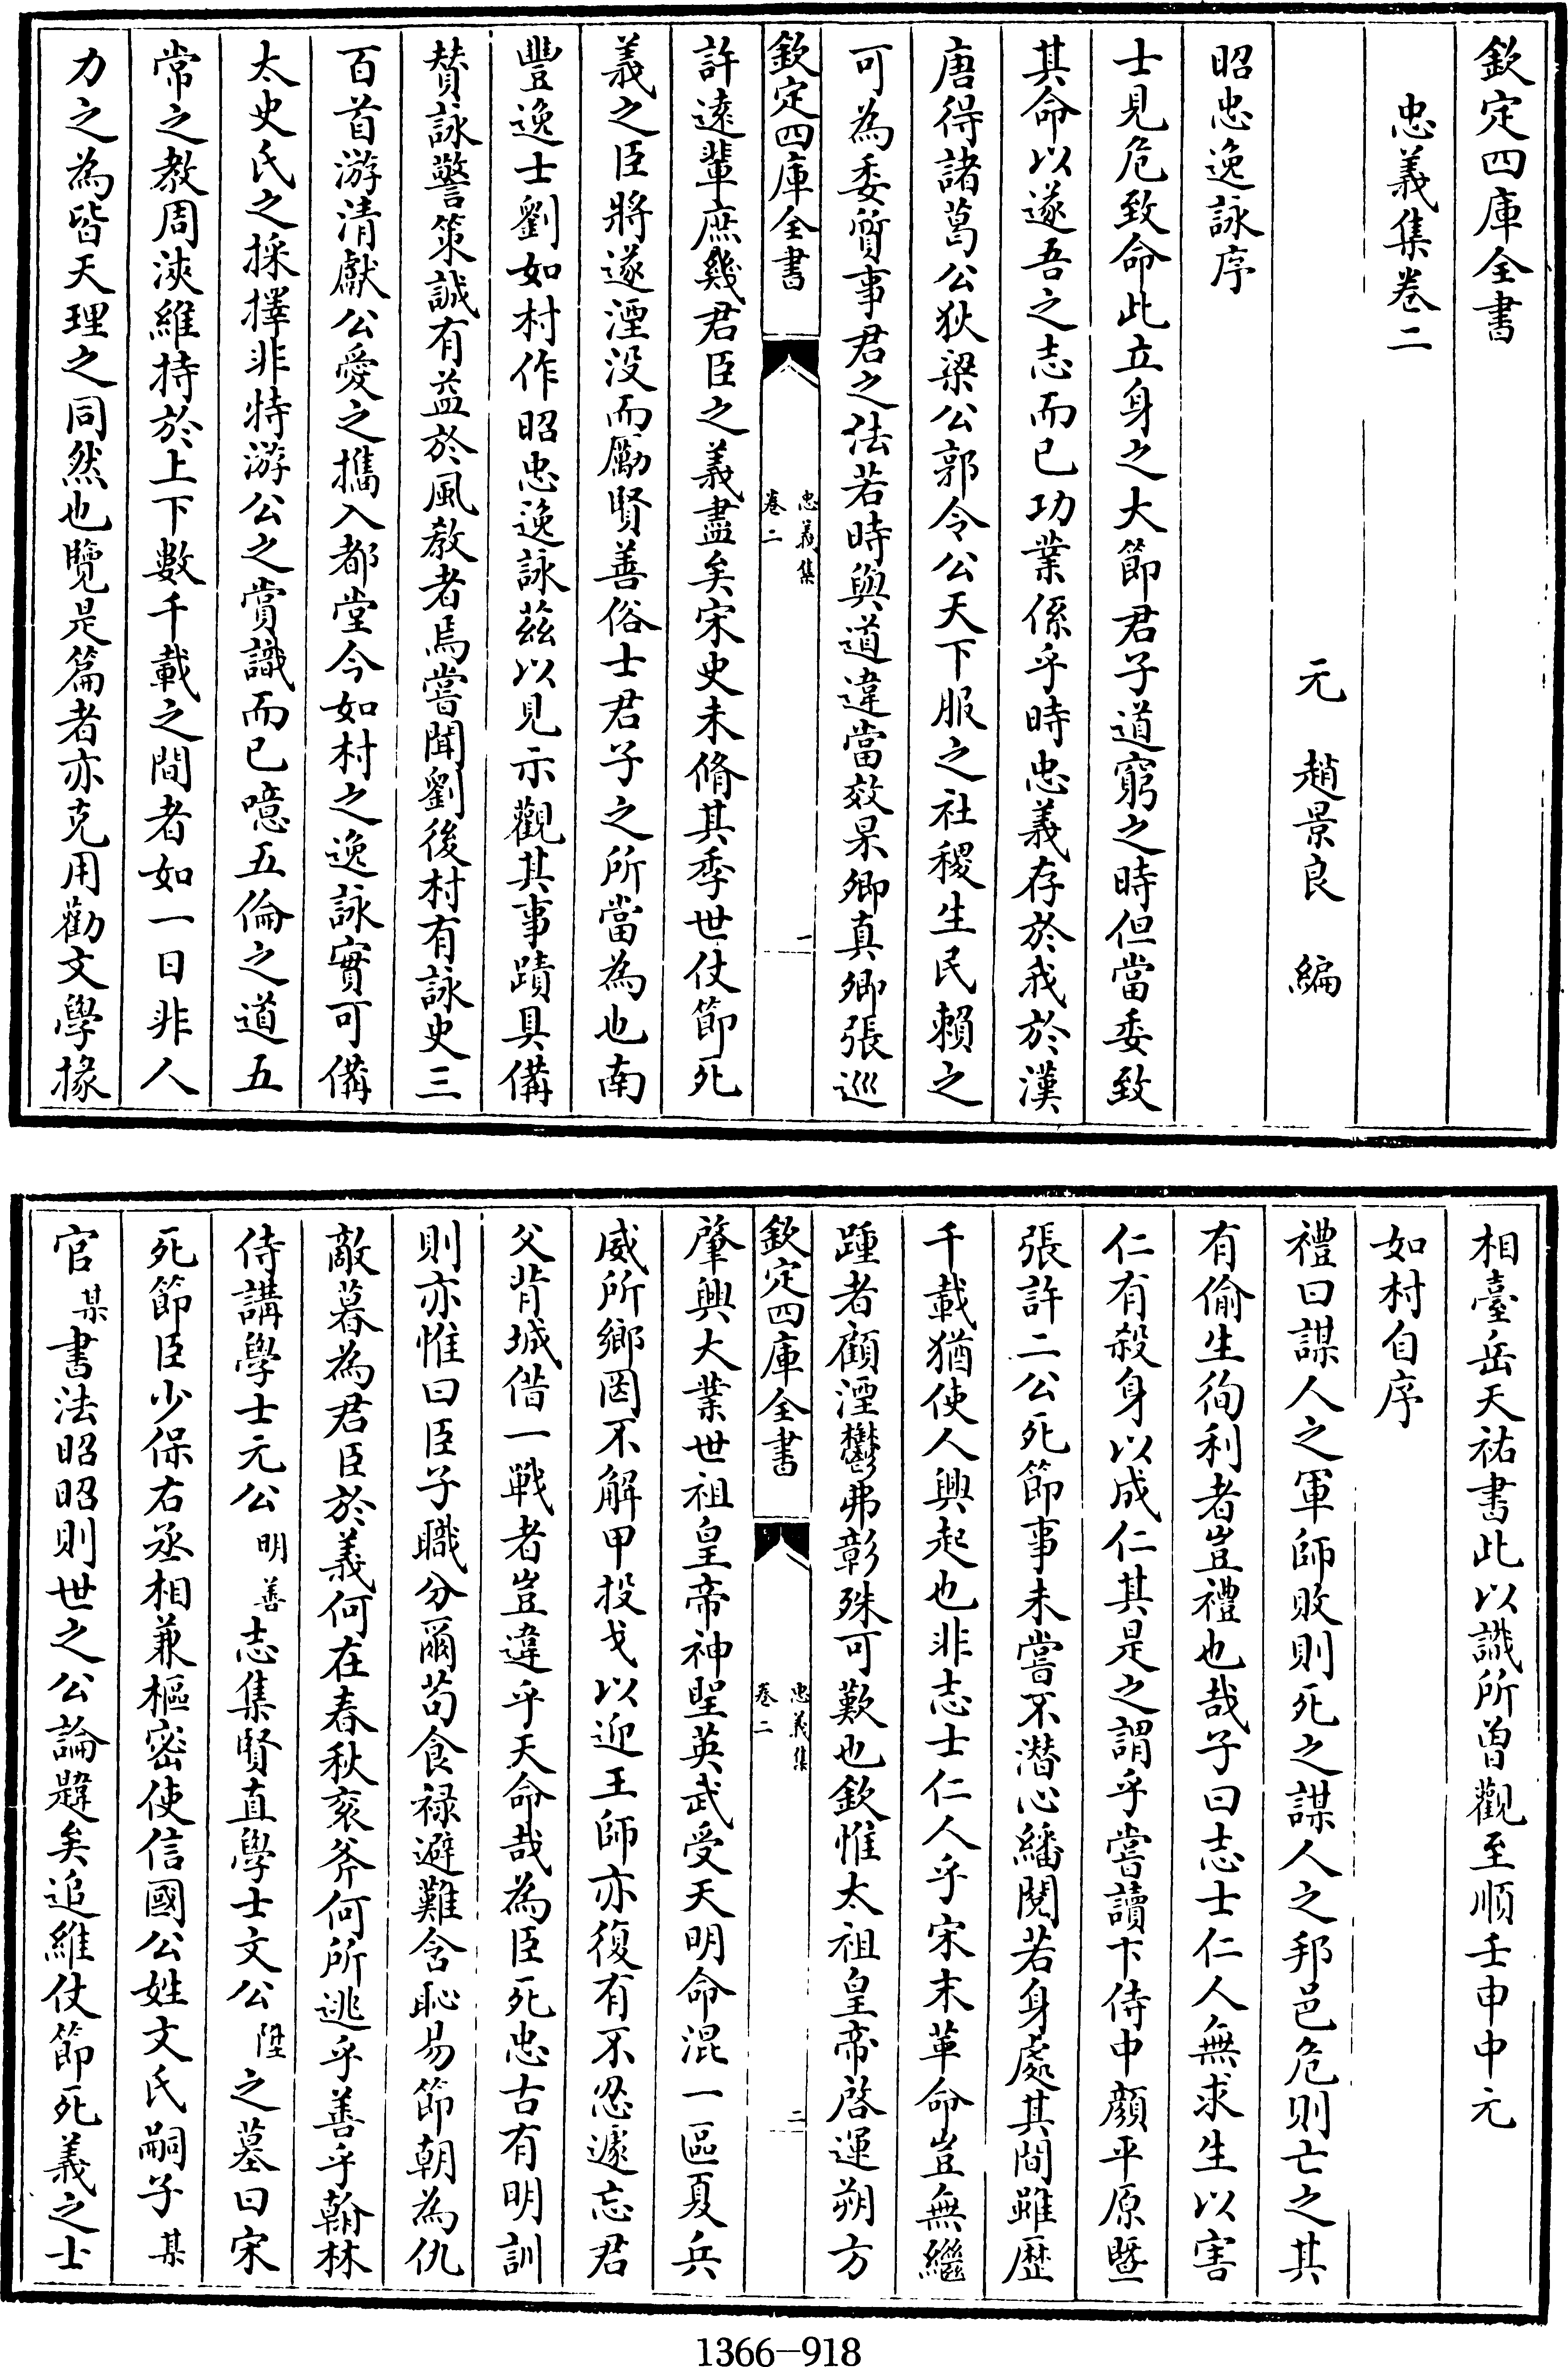 欽定四庫全書
忠義集卷二
元 趙景良 編
昭忠逸詠序
士見危致命此立身之大節君子道窮之時但當委致
其命以遂吾之志而已功業係乎時忠義存於我於漢
唐得諸葛公狄梁公郭令公天下服之社稷生民賴之
可為委質事君之法若時與道違當效杲卿真卿張巡
欽定四庫全書
忠義集
卷二
一
許遠輩庶幾君臣之義盡矣宋史未脩其季世仗節死
義之臣將遂湮没而勵賢善俗士君子之所當為也南
豐逸士劉如村作昭忠逸詠茲以見示觀其事蹟具備
賛詠警策誠有益於風教者焉嘗聞劉後村有詠史三
百首游清獻公愛之攜入都堂今如村之逸詠實可備
太史氏之採擇非特游公之賞識而已噫五倫之道五
常之教周浹維持於上下數千載之間者如一日非人
力之為皆天理之同然也覽是篇者亦克用勸文學掾
相臺岳天祐書此以識所曽觀至順壬申中元
如村自序
禮曰謀人之軍師敗則死之謀人之邦邑危則亡之其
有偷生徇利者豈禮也哉子曰志士仁人無求生以害
仁有殺身以成仁其是之謂乎嘗讀卞侍中顔平原暨
張許二公死節事未嘗不潛心繙閱若身處其間雖歴
千載猶使人興起也非志士仁人乎宋末革命豈無繼
踵者顧湮鬱弗彰殊可歎也欽惟太祖皇帝啓運朔方
欽定四庫全書
忠義集
卷二
二
肇興大業世祖皇帝神聖英武受天明命混一區夏兵
威所鄉罔不解甲投戈以迎王師亦復有不忍遽忘君
父背城借一戰者豈違乎天命哉為臣死忠古有明訓
則亦惟曰臣子職分爾苟食禄避難含恥易節朝為仇
敵暮為君臣於義何在春秋衮斧何所逃乎善乎翰林
侍講學士元公明善志集賢直學士文公陞之墓曰宋
死節臣少保右丞相兼樞密使信國公姓文氏嗣子某
官某書法昭昭則世之公論韙矣追維仗節死義之士
1366-918